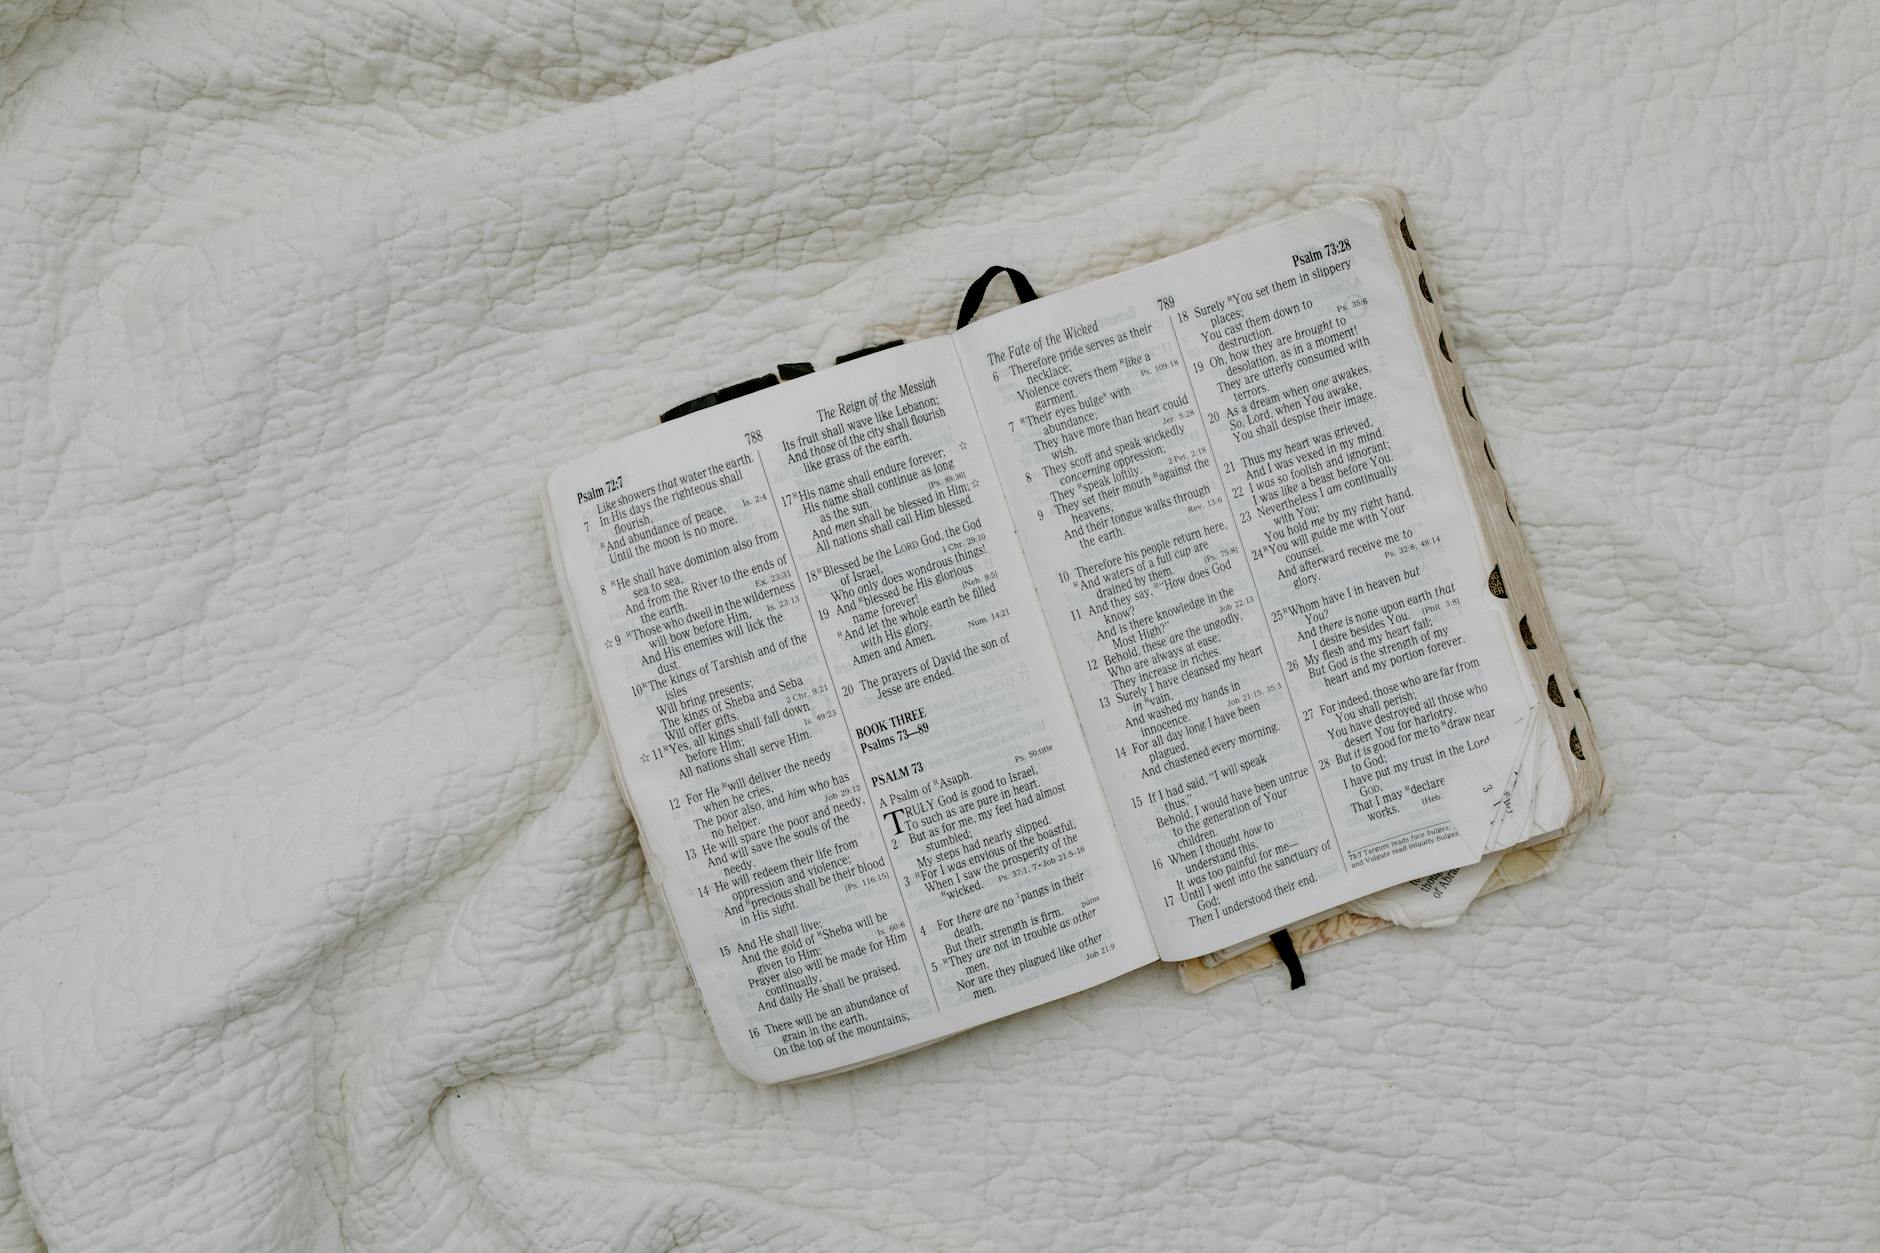 Psalm 72:7
788
Like showers that water the earth.
7 In His days the righteous shall
flourish,
ᴿAnd abundance of peace,
Is. 2:4
Until the moon is no more.
8 ᴿHe shall have dominion also from
sea to sea,
And from the River to the ends of
the earth.
Ex. 23:31
☆9 ᴿThose who dwell in the wilderness
will bow before Him,
Is. 23:13
And His enemies will lick the
dust.
10ᴿThe kings of Tarshish and of the
isles
Will bring presents;
The kings of Sheba and Seba
Will offer gifts.
2 Chr. 9:21
☆11ᴿYes, all kings shall fall down
before Him;
Is. 49:23
All nations shall serve Him.
12 For He ᴿwill deliver the needy
when he cries,
The poor also, and him who has
no helper.
Job 29:12
13 He will spare the poor and needy,
And will save the souls of the
needy.
☆14 He will redeem their life from
oppression and violence;
And ᴿprecious shall be their blood
in His sight.
[Ps. 116:15]
15 And He shall live;
And the gold of ᴿSheba will be
given to Him;
Is. 60:6
Prayer also will be made for Him
continually,
And daily He shall be praised.
16 There will be an abundance of
grain in the earth,
On the top of the mountains;
The Reign of the Messiah
Its fruit shall wave like Lebanon;
And those of the city shall flourish
like grass of the earth.
17ᴿHis name shall endure forever;☆
His name shall continue as long
as the sun.
[Ps. 89:36]
And men shall be blessed in Him;☆
All nations shall call Him blessed.
18ᴿBlessed be the LORD God, the God
of Israel,
1 Chr. 29:10
Who only does wondrous things!
19 And ᴿblessed be His glorious
name forever!
[Neh. 9:5]
ᴿAnd let the whole earth be filled
with His glory.
Num. 14:21
Amen and Amen.
20 The prayers of David the son of
Jesse are ended.
BOOK THREE
Psalms 73—89
PSALM 73
Ps. 50:title
A Psalm of ᴿAsaph.
TRULY God is good to Israel,
To such as are pure in heart.
2 But as for me, my feet had almost
stumbled;
My steps had nearly slipped.
3 ᴿFor I was envious of the boastful,
When I saw the prosperity of the
ᴿwicked.
Ps. 37:1, 7 • Job 21:5–16
4 For there are no ᵀpangs in their
death,
pains
But their strength is firm.
5 ᴿThey are not in trouble as other
men,
Nor are they plagued like other
men.
Job 21:9
The Fate of the Wicked
789
6 Therefore pride serves as their
necklace;
Violence covers them ᴿlike a
garment.
Ps. 109:18
7 ᴿTheir eyes bulgeᴺ with
abundance;
They have more than heart could
wish.
Jer. 5:28
8 They scoff and speak wickedly
concerning oppression;
They ᴿspeak loftily.
2 Pet. 2:18
9 They set their mouth ᴿagainst the
heavens,
And their tongue walks through
the earth.
Rev. 13:6
10 Therefore his people return here,
ᴿAnd waters of a full cup are
drained by them.
[Ps. 75:8]
11 And they say, ᴿ“How does God
know?
And is there knowledge in the
Most High?”
Job 22:13
12 Behold, these are the ungodly,
Who are always at ease;
They increase in riches.
13 Surely I have cleansed my heart
in ᴿvain,
And washed my hands in
innocence.
Job 21:15; 35:3
14 For all day long I have been
plagued,
And chastened every morning.
15 If I had said, “I will speak
thus,”
Behold, I would have been untrue
to the generation of Your
children.
16 When I thought how to
understand this,
It was too painful for me—
17 Until I went into the sanctuary of
God;
Then I understood their end.
Psalm 73:28
18 Surely ᴿYou set them in slippery
places;
You cast them down to
destruction.
Ps. 35:6
19 Oh, how they are brought to
desolation, as in a moment!
They are utterly consumed with
terrors.
20 As a dream when one awakes,
So, Lord, when You awake,
You shall despise their image.
21 Thus my heart was grieved,
And I was vexed in my mind.
22 I was so foolish and ignorant;
I was like a beast before You.
23 Nevertheless I am continually
with You;
You hold me by my right hand.
24ᴿYou will guide me with Your
counsel,
Ps. 32:8; 48:14
And afterward receive me to
glory.
25ᴿWhom have I in heaven but
You?
And there is none upon earth that
I desire besides You.
[Phil. 3:8]
26 My flesh and my heart fail;
But God is the strength of my
heart and my portion forever.
27 For indeed, those who are far from
You shall perish;
You have destroyed all those who
desert You for harlotry.
28 But it is good for me to ᴿdraw near
to God;
I have put my trust in the Lord
GOD,
That I may ᴿdeclare
works.
[Heb.
73:7 Targum reads face bulges;
and Vulgate read iniquity bulges
of Abra